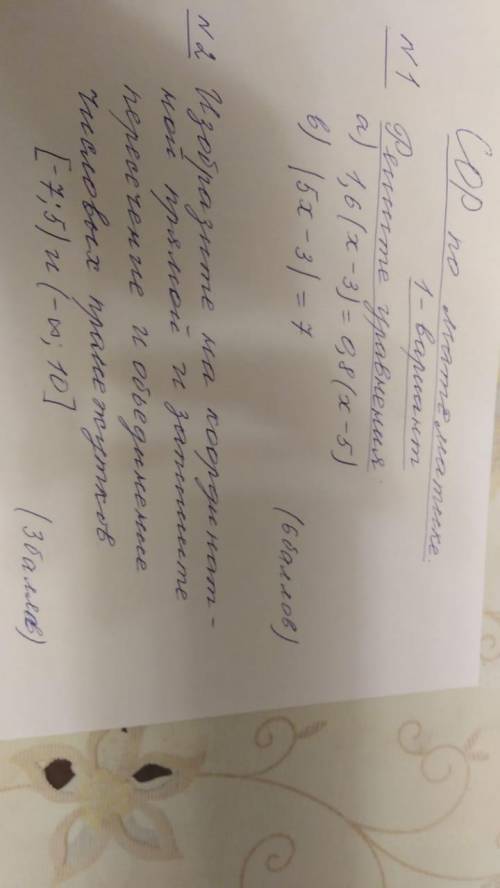 СОР по математике.
1-вариант
N1 Решите уравнения:
а) 1,6(x-3)=0,8(x-5)
в) |5x-3|=7
(6баллов)
N2 Изобразите на координат-
ной прямой и запишите
пересечение и объединение
числовых промежутков
[-7;5) и (-∞; 10]
(3балла)